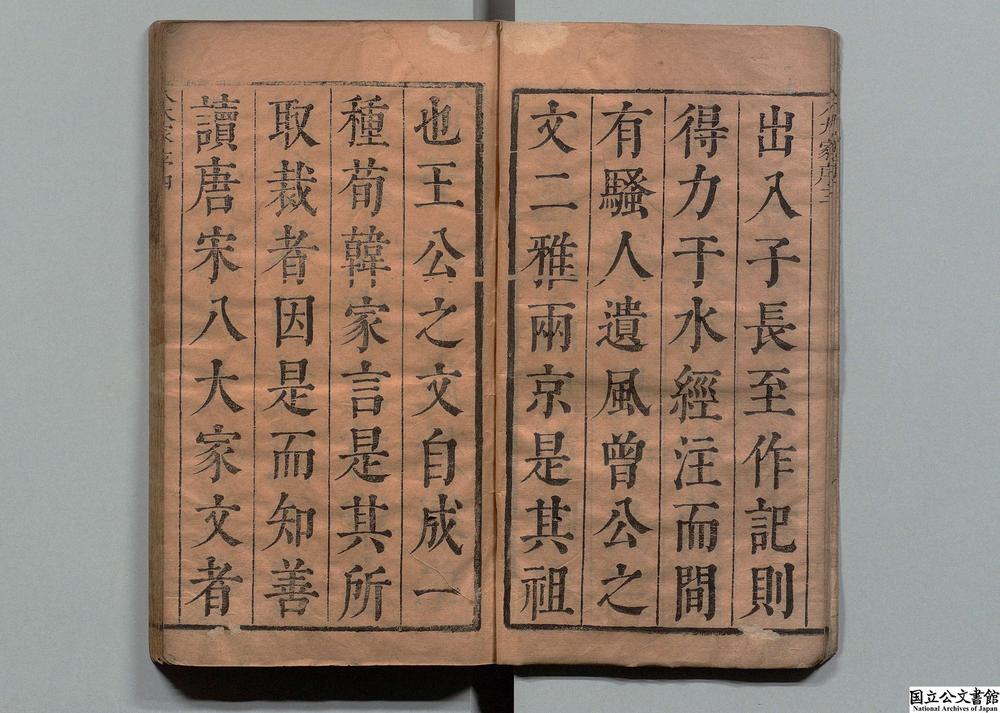 出入子長至作記則
得力于水經注而間
有騷人遺風曾公之
文二雅兩京是其祖
也王公之文自成一
種荀韓家言是其所
取裁者因是而知善
讀唐宋八大家文者
国立公文書館
National Archives of Japan